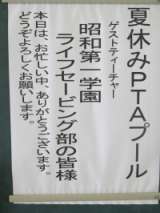 夏休みPTAプール
ゲストティーチャー
昭和第一学園
ライフセービング部の皆様
本日は、お忙しい中、ありがとうございます。
どうぞよろしくお願いします。